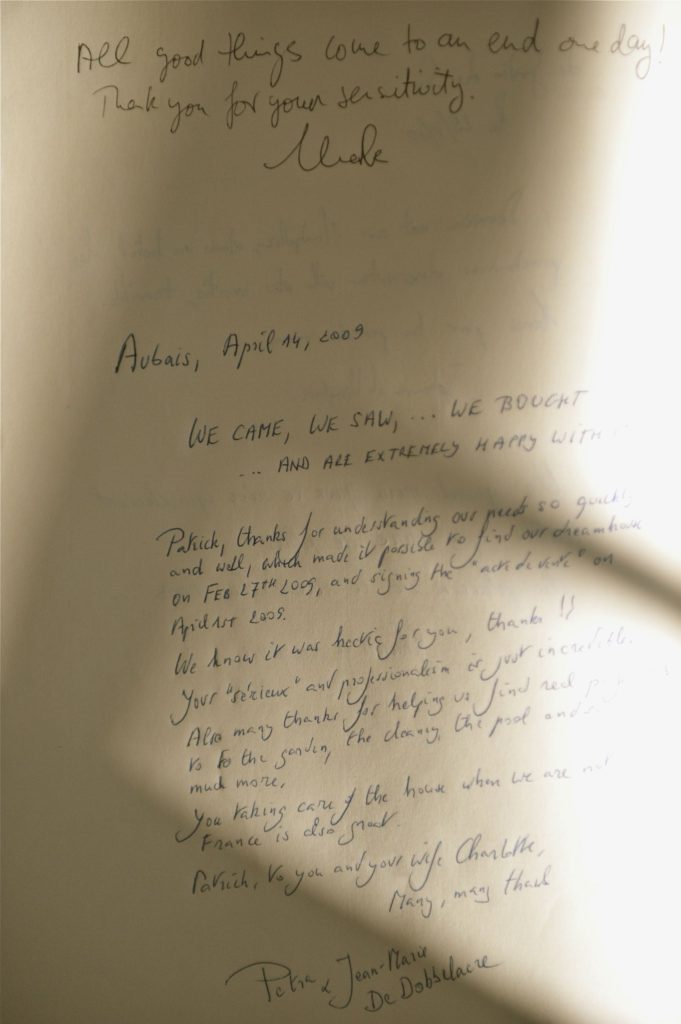 All good things come to an end one day!
Thank you for your sensitivity.
Aubais, April 14, 2009
WE CAME, WE SAW, ... WE BOUGHT
... AND ARE EXTREMELY HAPPY WITH
Patrick, thanks for understanding our needs so quickly
and well, which made it possible to find our dreamhouse
on FEB 27TH 2009, and signing the "acte de vente" on
April 1st 2009.
We know it was hectic for you, thanks !!
Your "sérieux" and professionalism is just incredible.
Also many thanks for helping us find
to the garden, the cleaning, the pool and
much more.
You taking care of the house when we are not
France is also great.
Patrick, to you and your wife Charlotte,
Many, many thank
Petra & Jean-Marie
De Dobbelaere